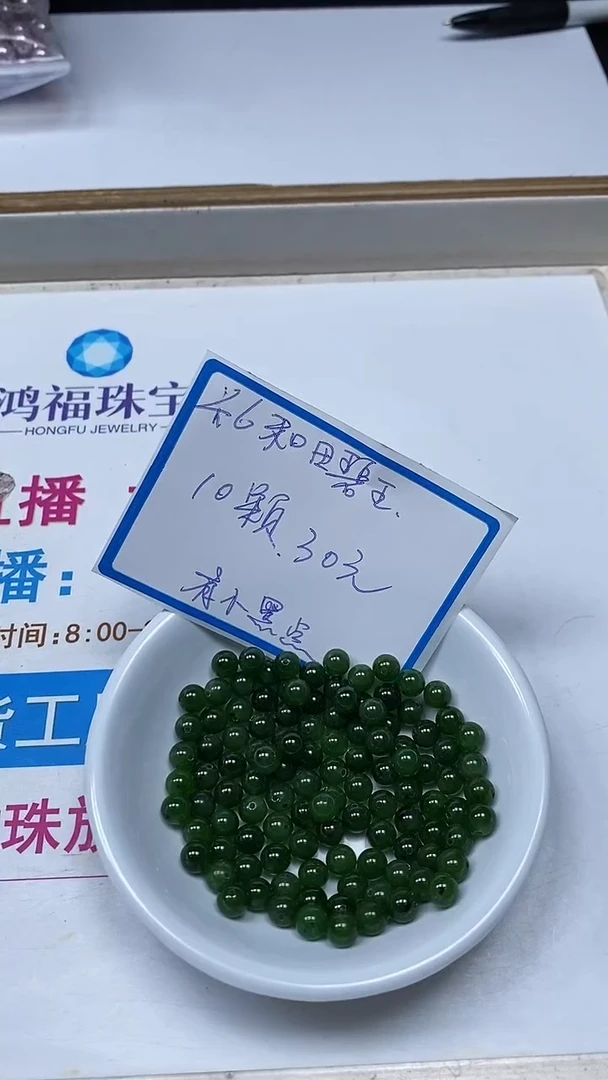 鸿福珠宝
HONGFU JEWELRY
播
播：
时间:8:00-
货工
珠放
6和田碧玉.
10颗.30元
有小黑点